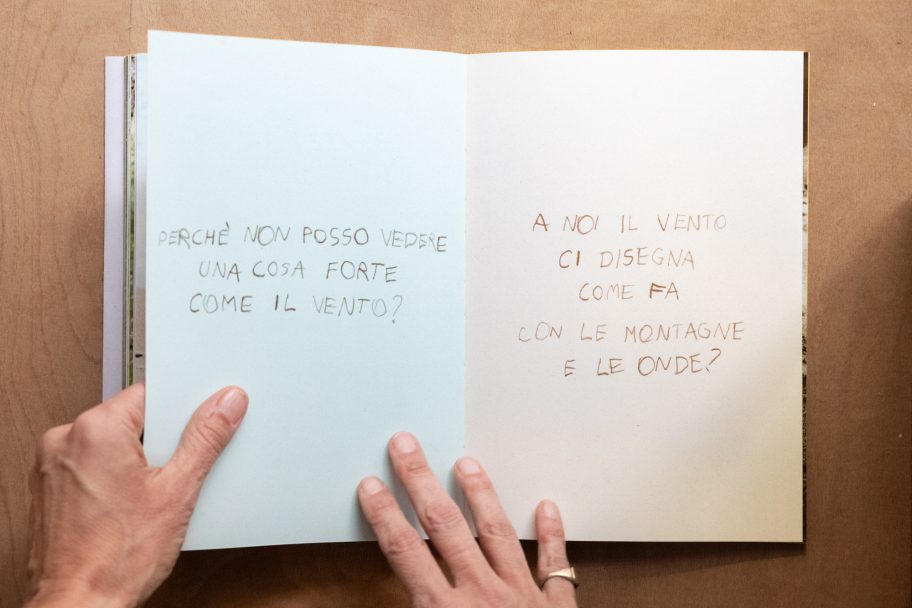 PERCHÈ NON POSSO VEDERE
UNA COSA FORTE
COME IL VENTO?
A NOI IL VENTO
CI DISEGNA
COME FA
CON LE MONTAGNE
E LE ONDE?